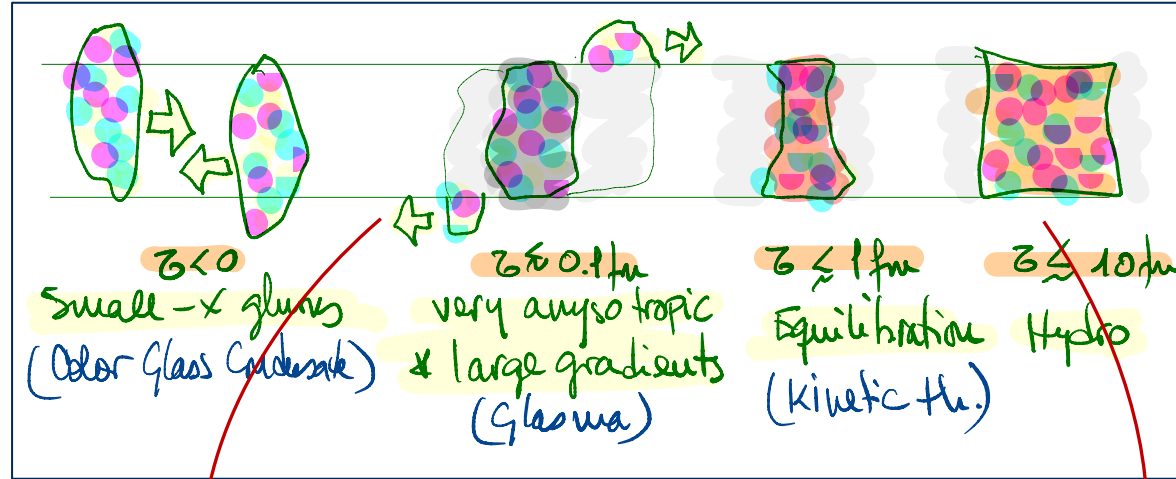 τ < 0
Small-x gluons
(Color Glass Condensate)
τ ≈ 0.1 fm
very anysotropic
* large gradients
(Glasma)
τ ≲ 1 fm
Equilibration
(Kinetic th.)
τ ≲ 10 fm
Hydro